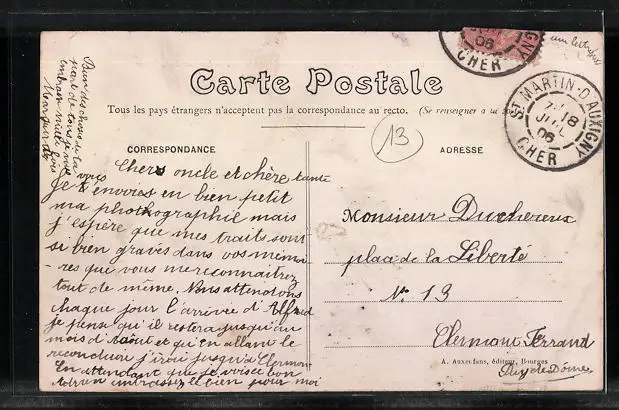 CHER
06
Carte Postale
Tous les pays étrangers n'acceptent pas la correspondance au recto. (Se renseigner a
ST MARTIN-D'AUXIGNY
18
06
CHER
13
CORRESPONDANCE
ADRESSE
Chers oncle et chère tante
Je vous envoies en bien petit
ma photographie mais
j'espère que mes traits sont
si bien gravés dans vos mémoi
-res que vous me reconnaitrez
tout de même. Nous attendons
chaque jour l'arrivée d'Alfred
je pense qu'il restera jusqu'au
mois d'Aout et qu'en allant le
reconduir j'irai jusqu'à Clermont
En attendant que je
embrassez le bien pour moi
Bien des choses
part de tous je
embrasse mille fois
Marguerite
Monsieur Duchereux
place de la Liberté
N° 13
Clermont Ferrand
Puy de Dôme
A. Auxenfans, éditeur, Bourges